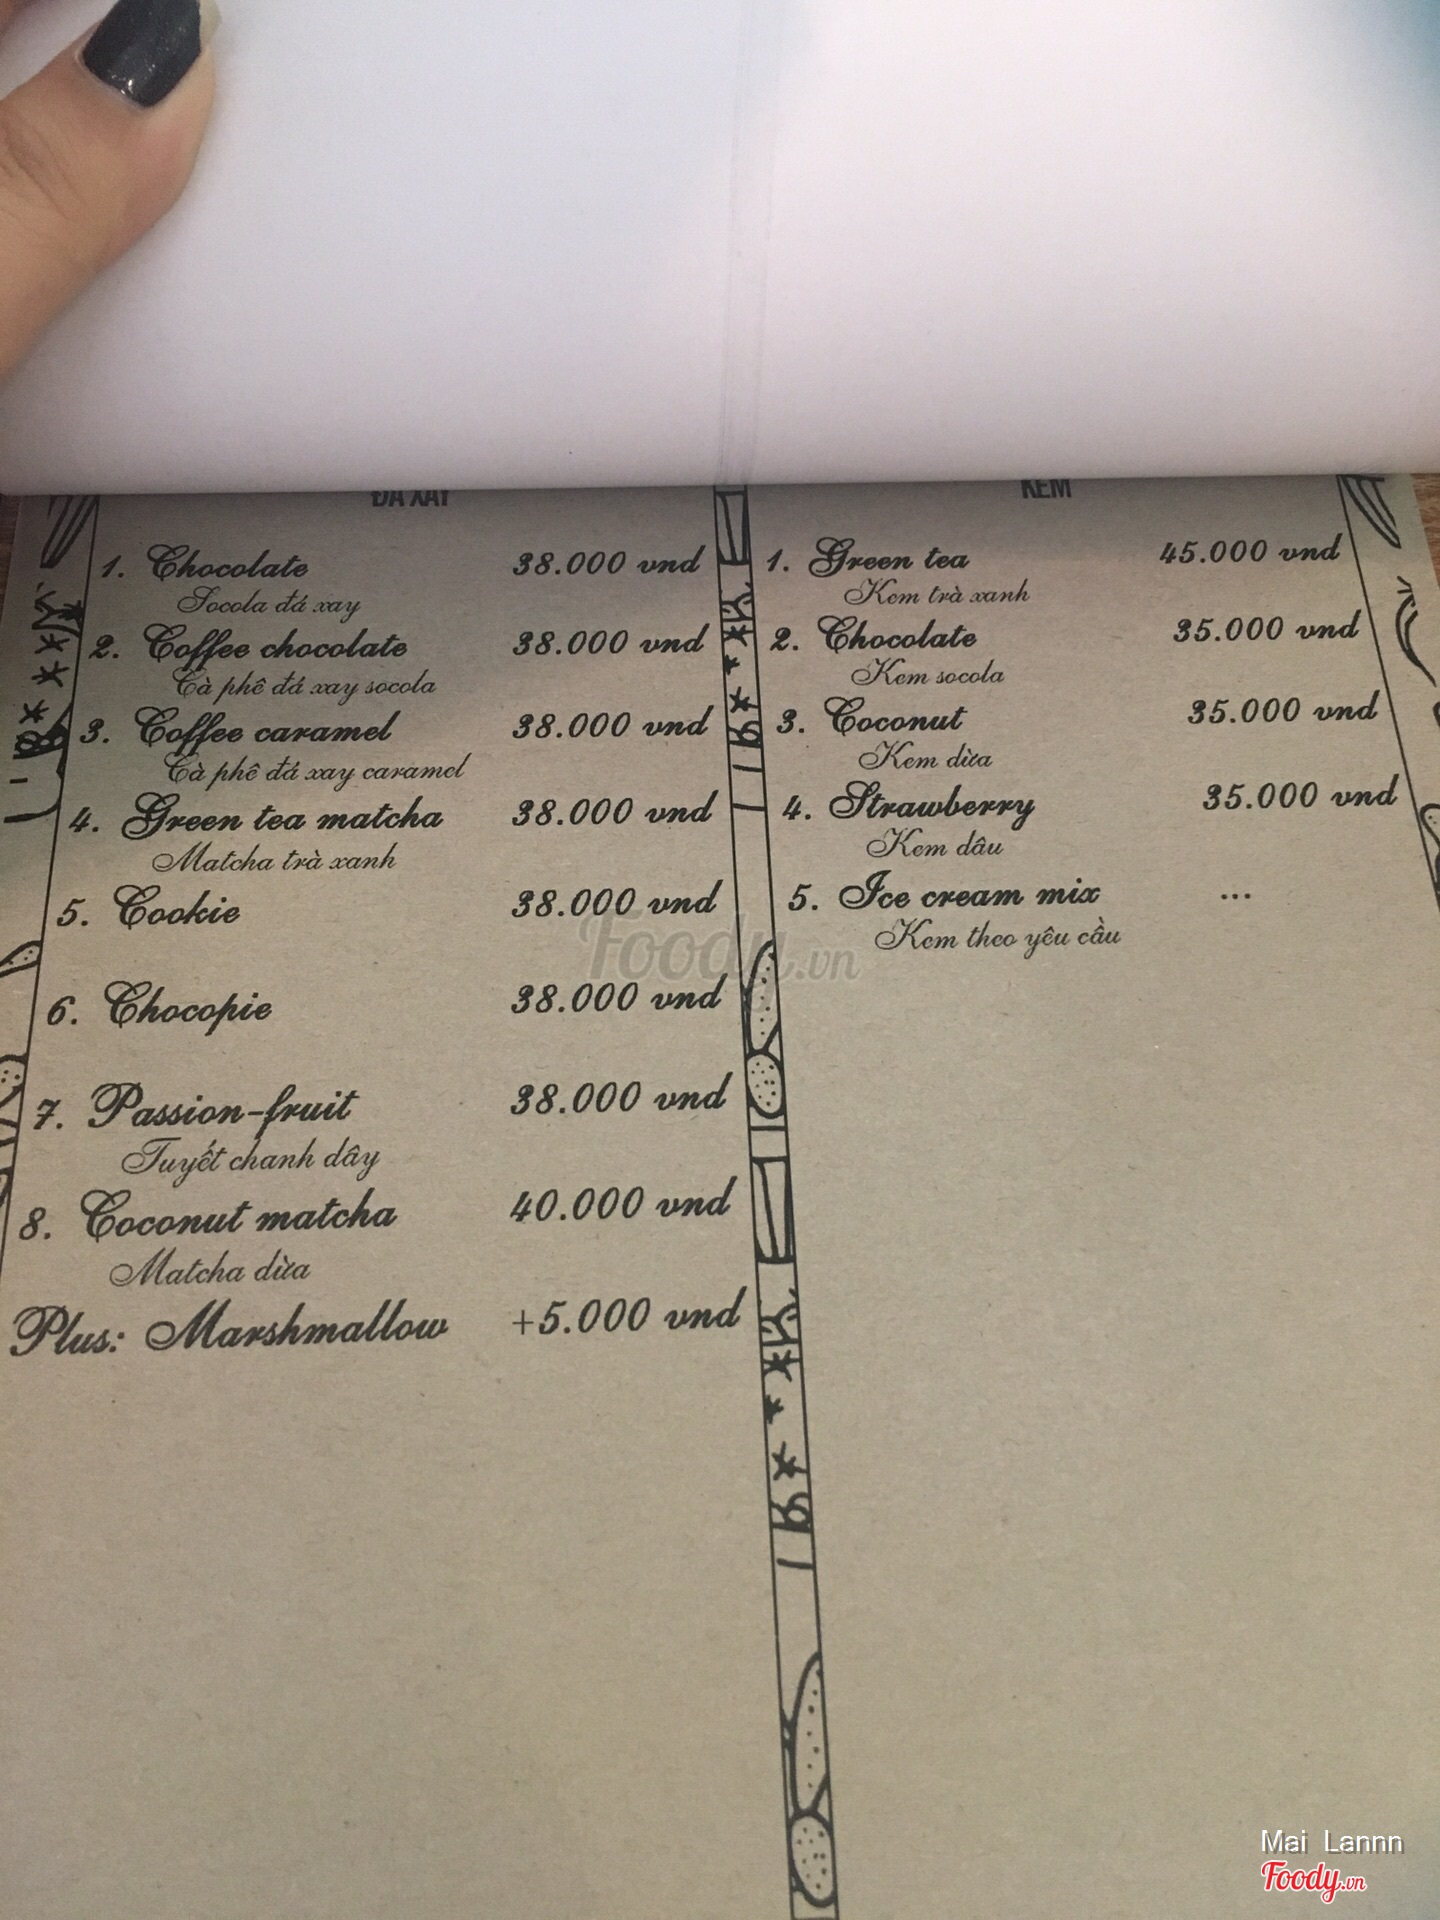 ĐÁ XAY
1. Chocolate 38.000 vnd
Socola đá xay
2. Coffee chocolate 38.000 vnd
Cà phê đá xay socola
3. Coffee caramel 38.000 vnd
Cà phê đá xay caramel
4. Green tea matcha 38.000 vnd
Matcha trà xanh
5. Cookie 38.000 vnd
6. Chocopie 38.000 vnd
7. Passion-fruit 38.000 vnd
Tuyết chanh dây
8. Coconut matcha 40.000 vnd
Matcha dừa
Plus: Marshmallow +5.000 vnd
KEM
1. Green tea 45.000 vnd
Kem trà xanh
2. Chocolate 35.000 vnd
Kem socola
3. Coconut 35.000 vnd
Kem dừa
4. Strawberry 35.000 vnd
Kem dâu
5. Ice cream mix ...
Kem theo yêu cầu
Foody.vn
Mai Lannn
Foody.vn